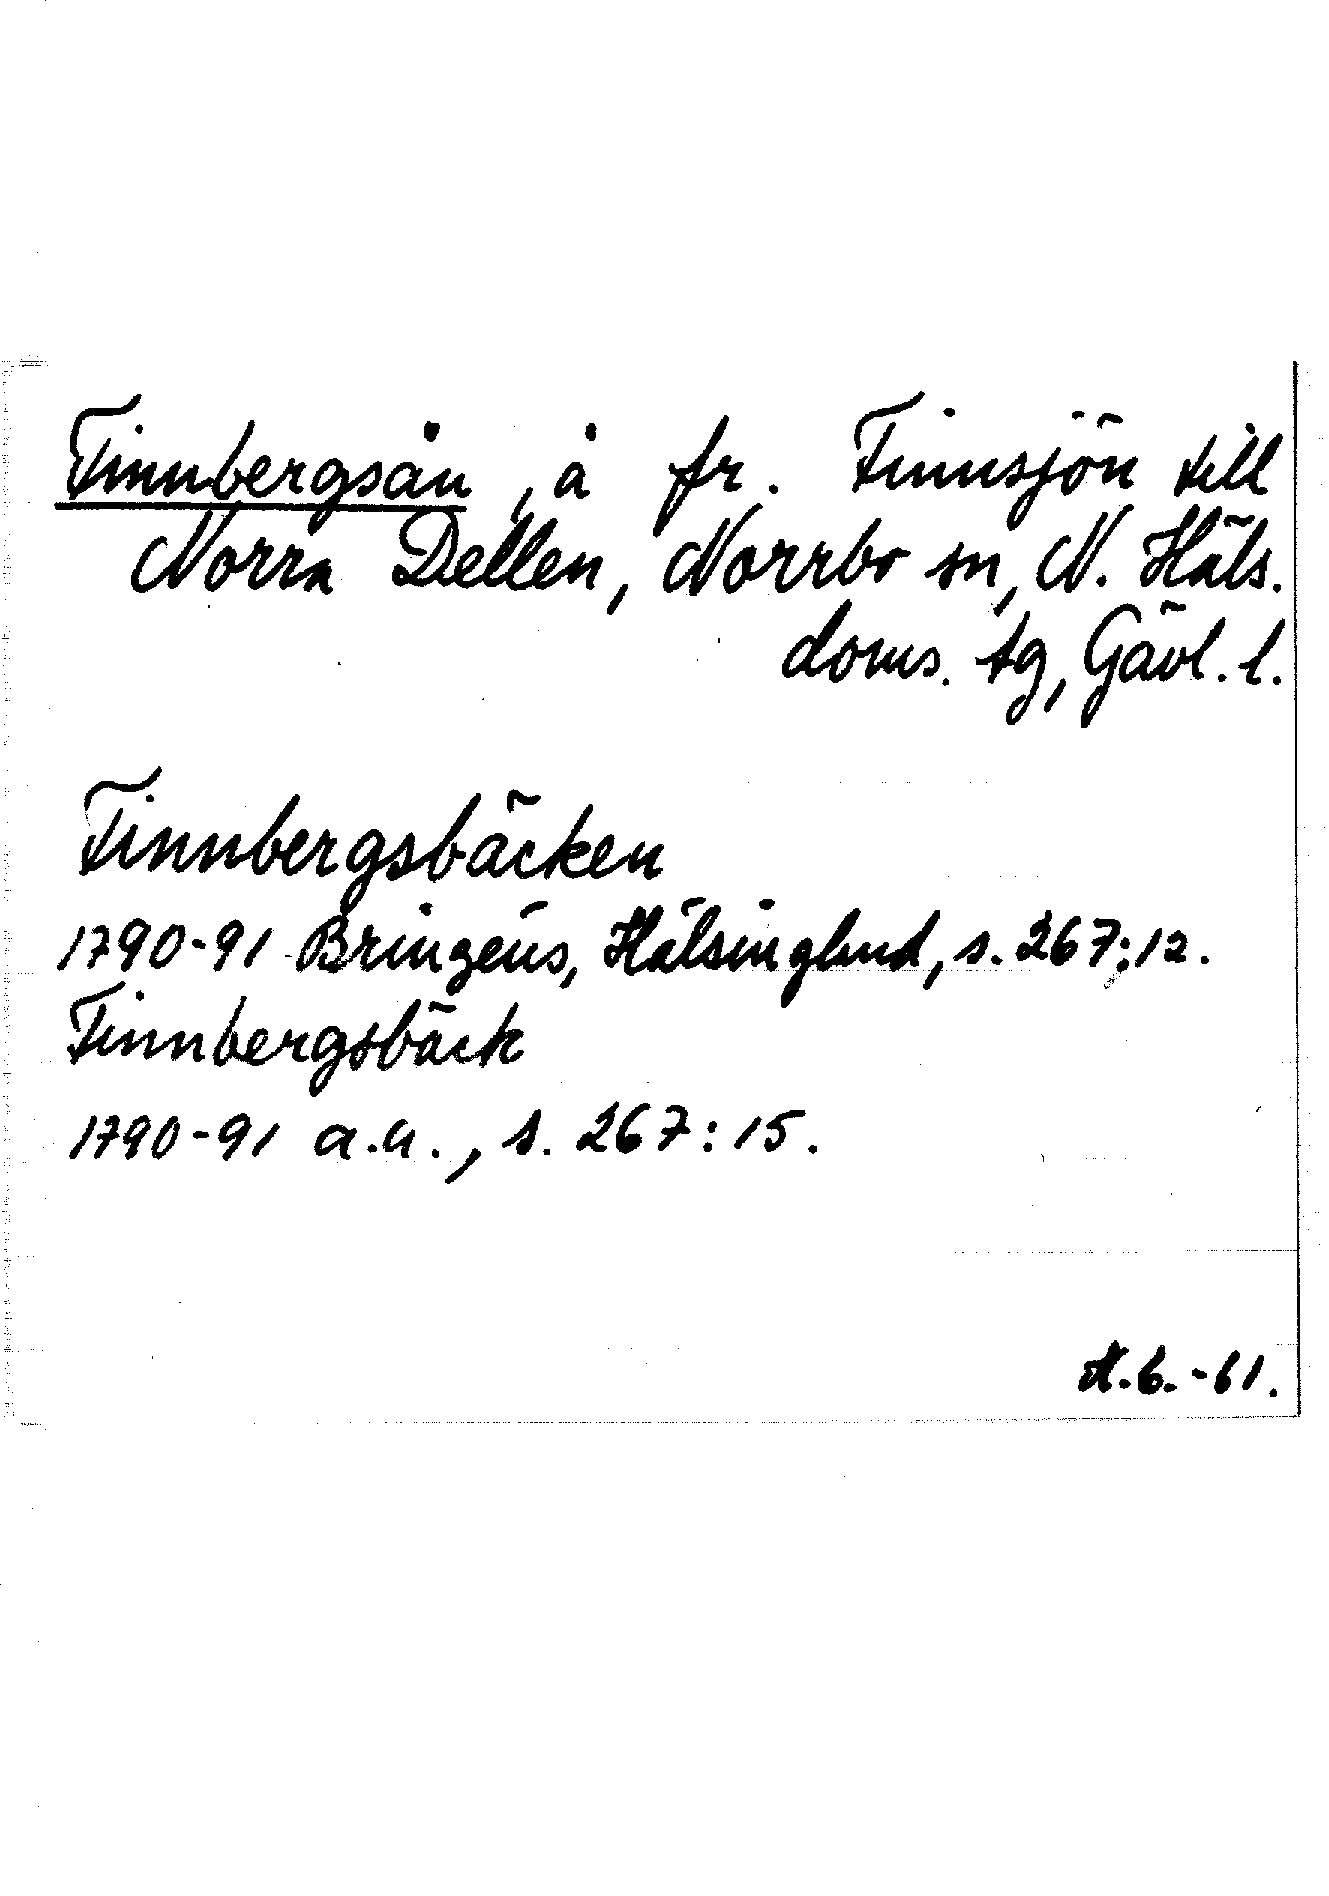 Finnbergsån, å fr. Finnsjön till
Norra Dellen, Norrbo sn, N. Häls.
doms. tg, Gävl. l.
Finnbergsbäcken
1790-91 Bringéus, Hälsingland, s. 267:12.
Finnbergsbäck
1790-91 a.a., s. 267:15.
-61.